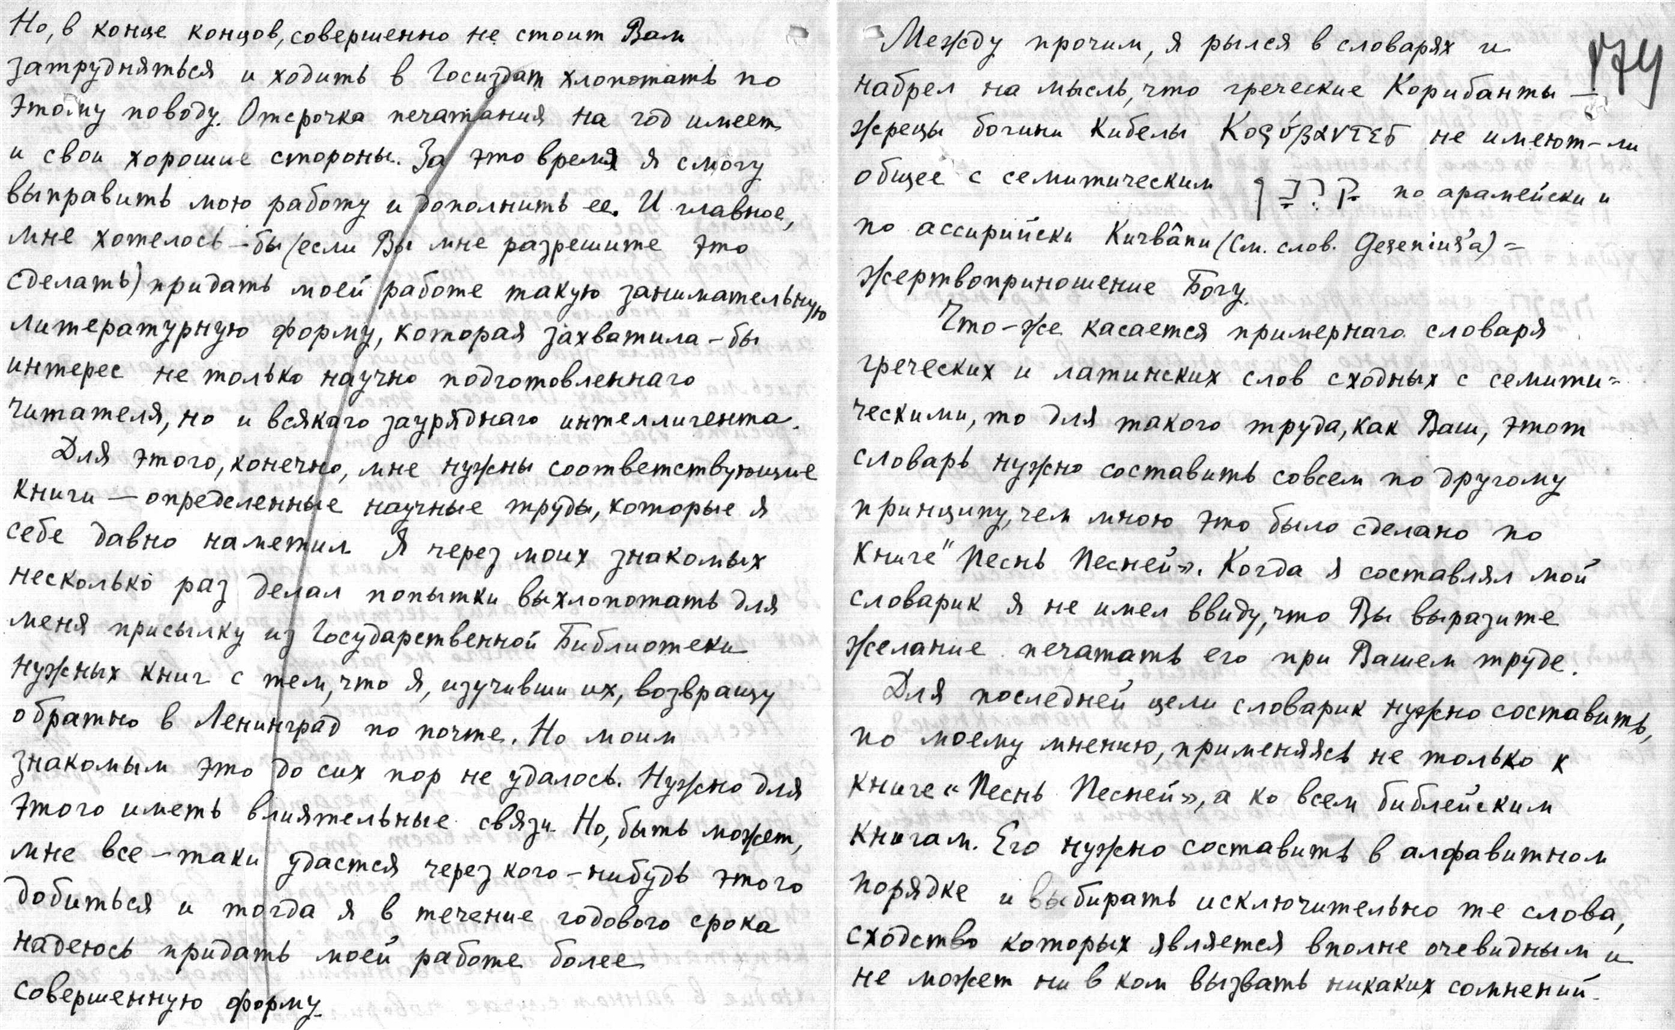 Но, в конце концов, совершенно не стоит Вам
затрудняться и ходить в Госиздат хлопотать по
этому поводу. Отсрочка печатания на год имеет
и свои хорошие стороны. За это время я смогу
выправить мою работу и дополнить ее. И главное,
мне хотелось-бы (если Вы мне разрешите это
сделать) придать моей работе такую занимательную
литературную форму, которая захватила-бы
интерес не только научно подготовленнаго
читателя, но и всякаго зауряднаго интеллигента.
Для этого, конечно, мне нужны соответствующие
книги — определенные научные труды, которые я
себе давно наметил. Я через моих знакомых
несколько раз делал попытки выхлопотать для
меня присылку из Государственной Библиотеки
нужных книг с тем, что я, изучивши их, возвращу
обратно в Ленинград по почте. Но моим
знакомым это до сих пор не удалось. Нужно для
этого иметь влиятельные связи. Но, быть может,
мне все-таки удастся через кого-нибудь этого
добиться и тогда я в течение годового срока
надеюсь придать моей работе более
совершенную форму.
179
Между прочим, я рылся в словарях и
набрел на мысль, что греческие Корибанты —
жрецы богини Кибелы Κορύβαντες не имеют-ли
общее с семитическим קרבן по арамейски и
по ассирийски Кирвâпи (см. слов. Gesenius'a) =
жертвоприношение Богу.
Что-же касается примернаго словаря
греческих и латинских слов сходных с семити=
ческими, то для такого труда, как Ваш, этот
словарь нужно составить совсем по другому
принципу, чем мною это было сделано по
книге "Песнь Песней". Когда я составлял мой
словарик я не имел ввиду, что Вы выразите
желание печатать его при Вашем труде.
Для последней цели словарик нужно составить,
по моему мнению, применяясь не только к
книге «Песнь Песней», а ко всем библейским
книгам. Его нужно составить в алфавитном
порядке и выбирать исключительно те слова,
сходство которых является вполне очевидным и
не может ни в ком вызвать никаких сомнений.